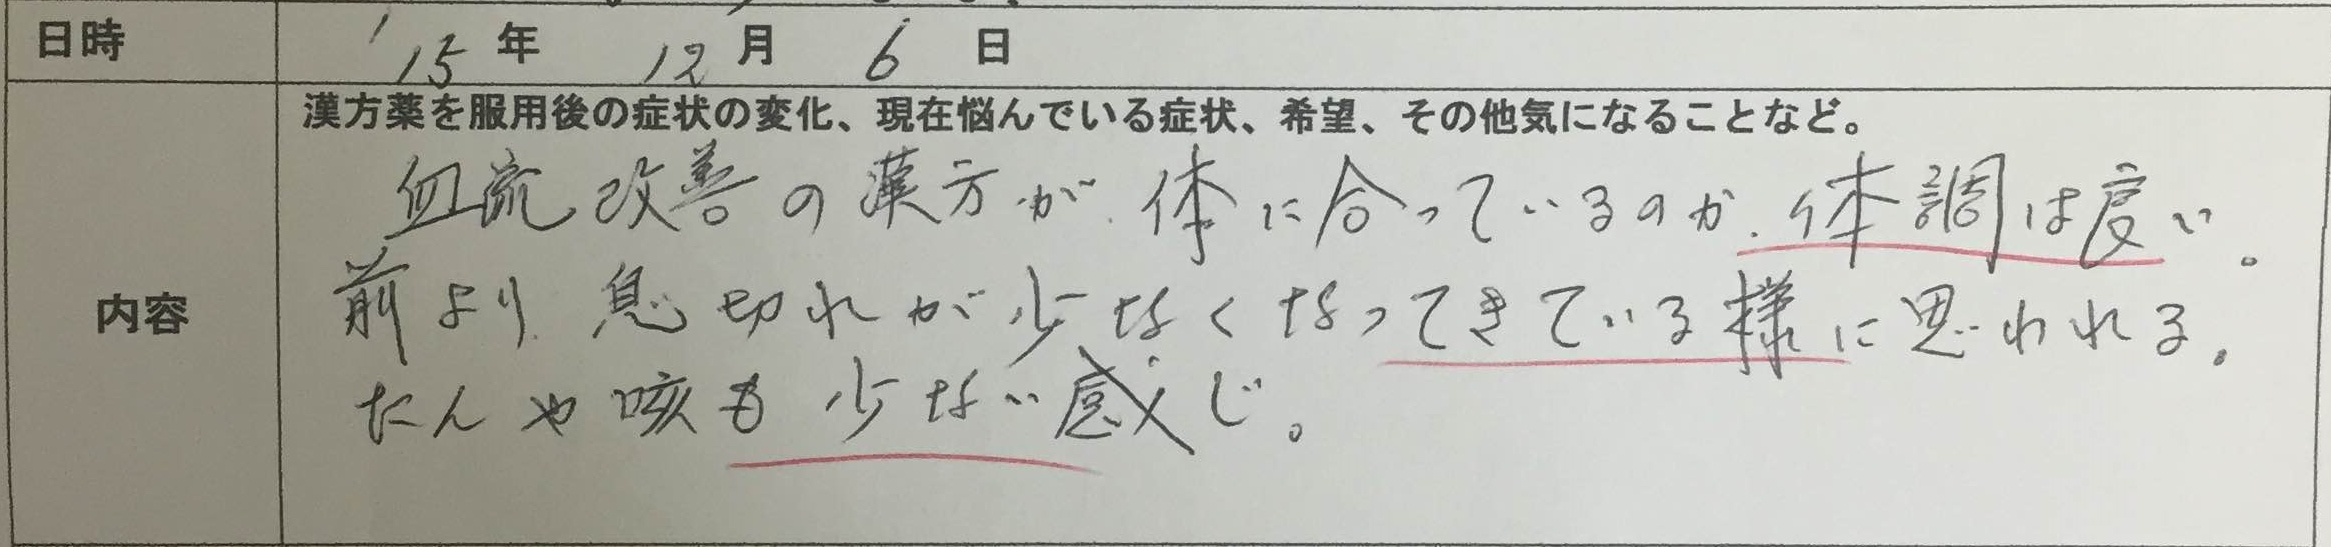 日時 '15年 12月 6日
漢方薬を服用後の症状の変化、現在悩んでいる症状、希望、その他気になることなど。
血流改善の漢方が体に合っているのか、体調は良い。
内容
前より息切れが少なくなってきている様に思われる。
たんや咳も少ない感じ。